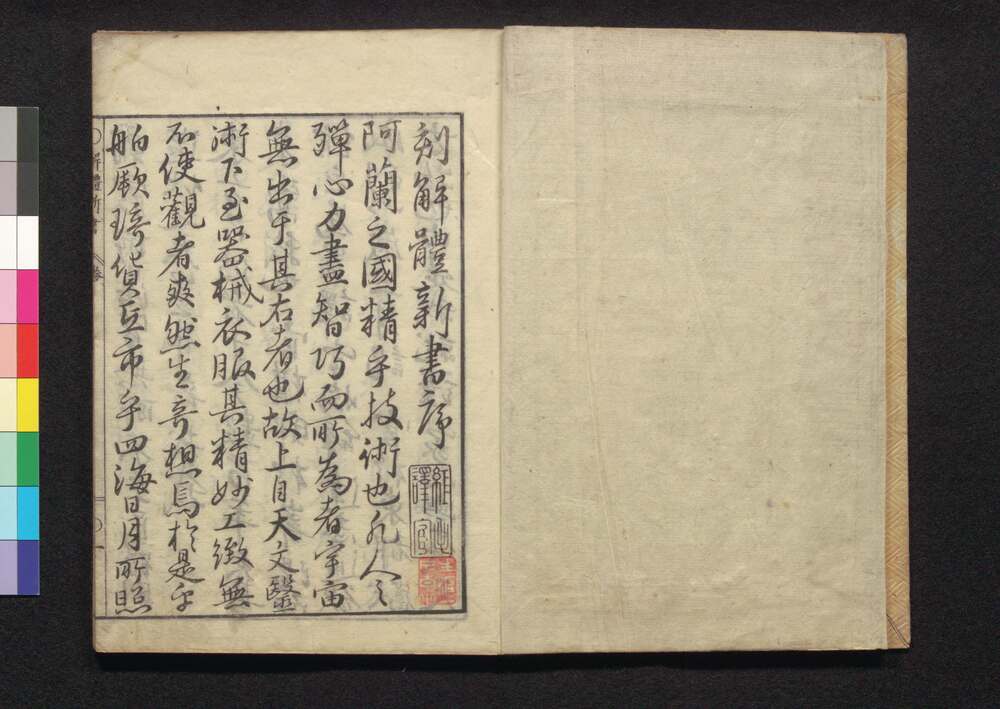 刻解體新書序
阿蘭之國精乎技術也凡人之
殫心力盡智巧而所為者宇宙
無出于其右者也故上自天文醫
術下至器械衣服其精妙工緻無
不使觀者爽然生奇想焉於是乎
舶厥琦貨互市乎四海日月所照
解體新書